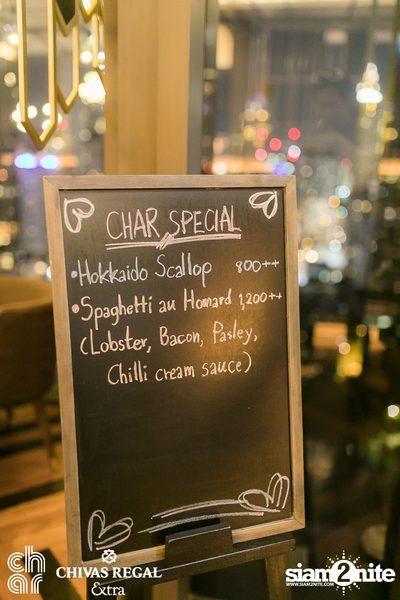 CHAR SPECIAL
• Hokkaido Scallop 800++
• Spaghetti au Homard 1,200++
(Lobster, Bacon, Pasley,
Chilli cream sauce)
char
CHIVAS REGAL
Extra
siam2nite
WWW.SIAM2NITE.COM